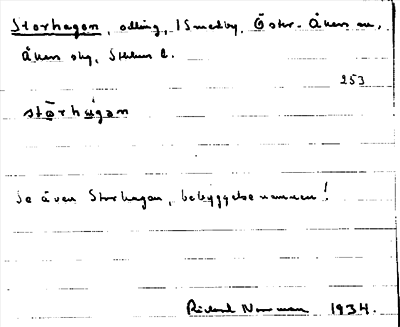 Storhagen, odling, i Smedby, Öster-Åkers sn,
Åkers skg, Sthlms l.
253
stōrhágan
Se även Storhagen, bebyggelsenamnen!
Rickard Norrman 1934.